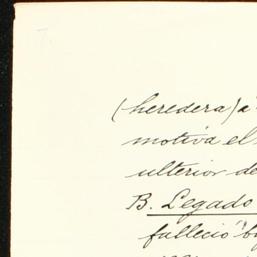 (heredera) á
motiva el
ulterior de
B. Legado
falleció